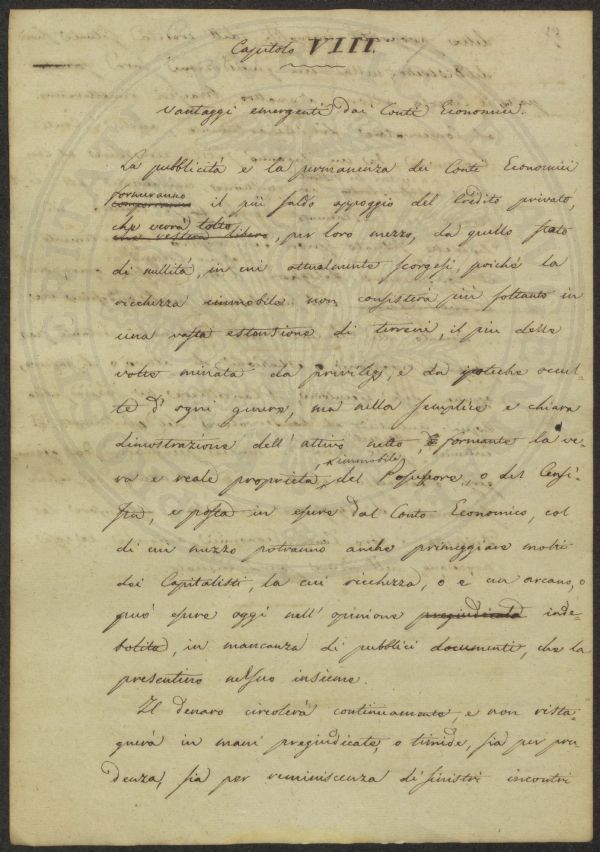 Capitolo VIII.
Vantaggi emergenti dai Conti Economici.
La pubblicità e la permanenza dei Conti Economici
formeranno
comporranno il più saldo appoggio del Credito privato,
che verrà tolto
che resterà libero, per loro mezzo, da quello stato
di nullità, in cui attualmente scorgesi, poichè la
ricchezza immobile non consisterà più soltanto in
una vasta estensione di terreni, il più delle
volte minata da privilegj, e da ipoteche occul-
te d'ogni genere, ma nella semplice e chiara
dimostrazione dell'attivo netto, formante la ve-
ra e reale proprietà, immobile del Possessore, o del Censi-
sta, e posta in essere dal Conto Economico, col
di cui mezzo potranno anche primeggiare molti
dei Capitalisti, la cui ricchezza, o è un arcano, o
può essere oggi nell'opinione pregiudicata inde-
bolita, in mancanza di pubblici documenti, che la
presentino nel suo insieme.
Il denaro circolerà continuamente, e non rista-
gnerà in mani pregiudicate, o timide, sia per pru-
denza, sia per reminiscenza di sinistri incontri